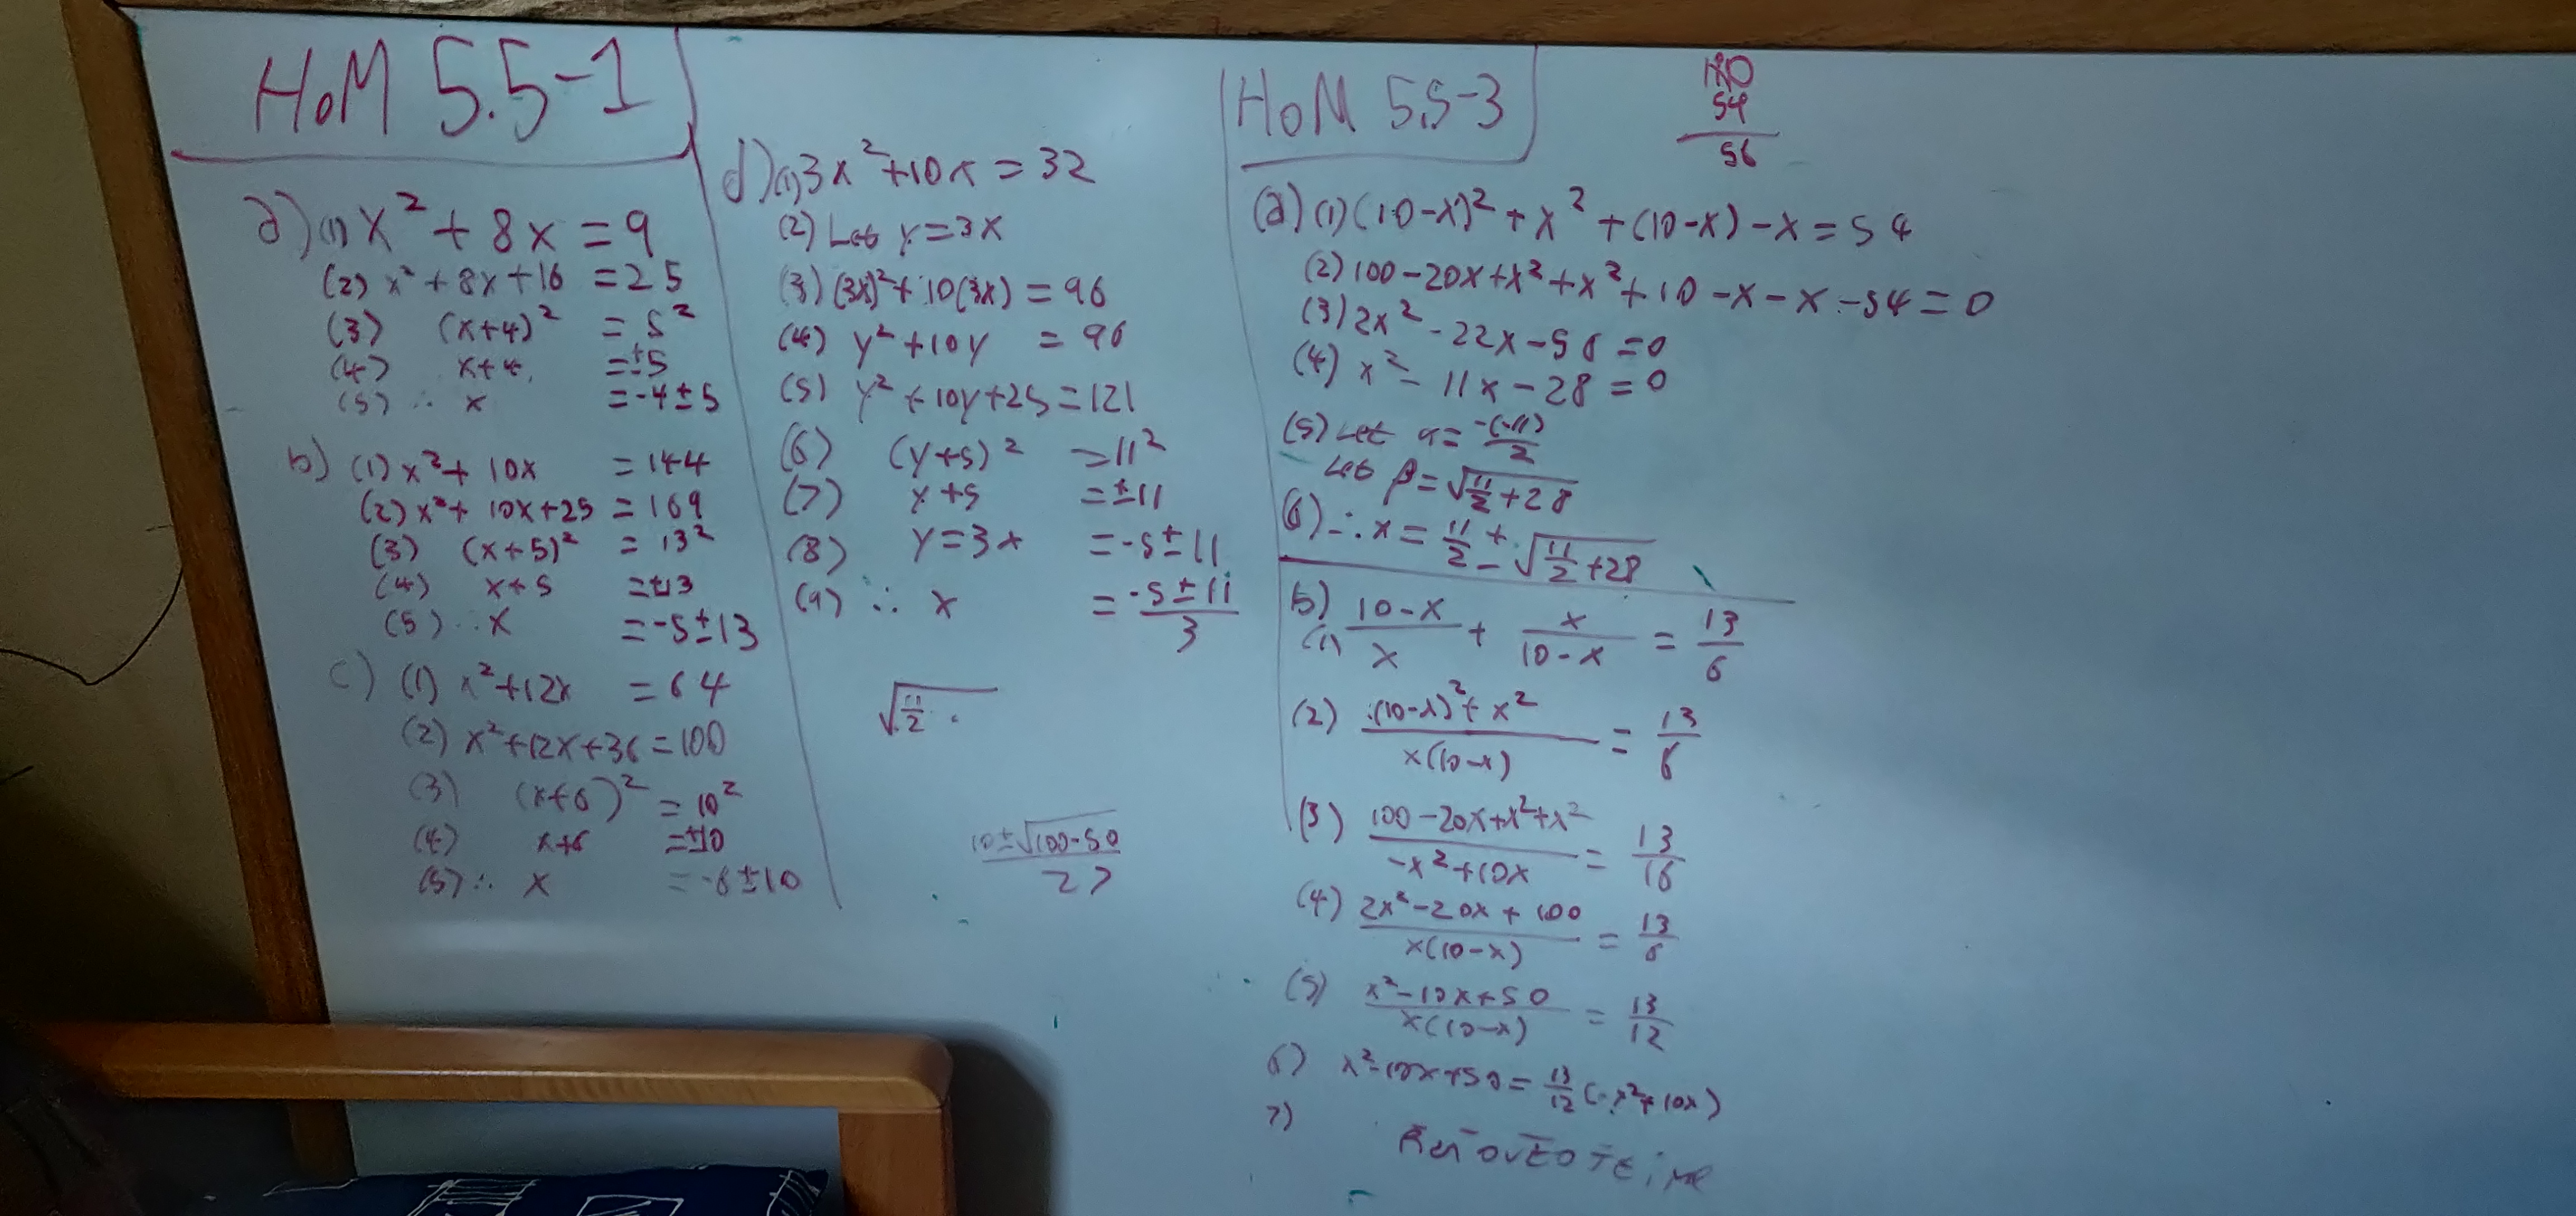 HoM 5.5-1
a) (1) x² + 8x = 9
(2) x² + 8x + 16 = 25
(3) (x+4)² = 5²
(4) x+4 = ±5
(5) ∴ x = -4±5
b) (1) x² + 10x = 144
(2) x² + 10x+25 = 169
(3) (x+5)² = 13²
(4) x+5 = ±13
(5) ∴ x = -5±13
c) (1) x²+12x = 64
(2) x²+12x+36 = 100
(3) (x+6)² = 10²
(4) x+6 = ±10
(5) ∴ x = -6±10
d) (1) 3x²+10x = 32
(2) Let y=3x
(3) (3x)²+10(3x) = 96
(4) y²+10y = 96
(5) y²+10y+25 = 121
(6) (y+5)² = 11²
(7) y+5 = ±11
(8) y=3x = -5±11
(9) ∴ x = (-5±11)/3
√(11/2
(10±√(100-50))/2
HoM 5.5-3
54
56
(a) (1) (10-x)² + x² + (10-x) - x = 54
(2) 100-20x+x²+x²+10-x-x-54=0
(3) 2x²-22x-56=0
(4) x²-11x-28=0
(5) Let α = -(-11)/2
Let β = √(11/2+28)
(6) ∴ x = 11/2 ± √(11/2+28)
b) (1) (10-x)/x + x/(10-x) = 13/6
(2) ((10-x)²+x²)/(x(10-x)) = 13/6
(3) (100-20x+x²+x²)/(-x²+10x) = 13/16
(4) (2x²-20x+100)/(x(10-x)) = 13/6
(5) (x²-10x+50)/(x(10-x)) = 13/12
6) x²-10x+50 = 13/12(-x²+10x)
7)